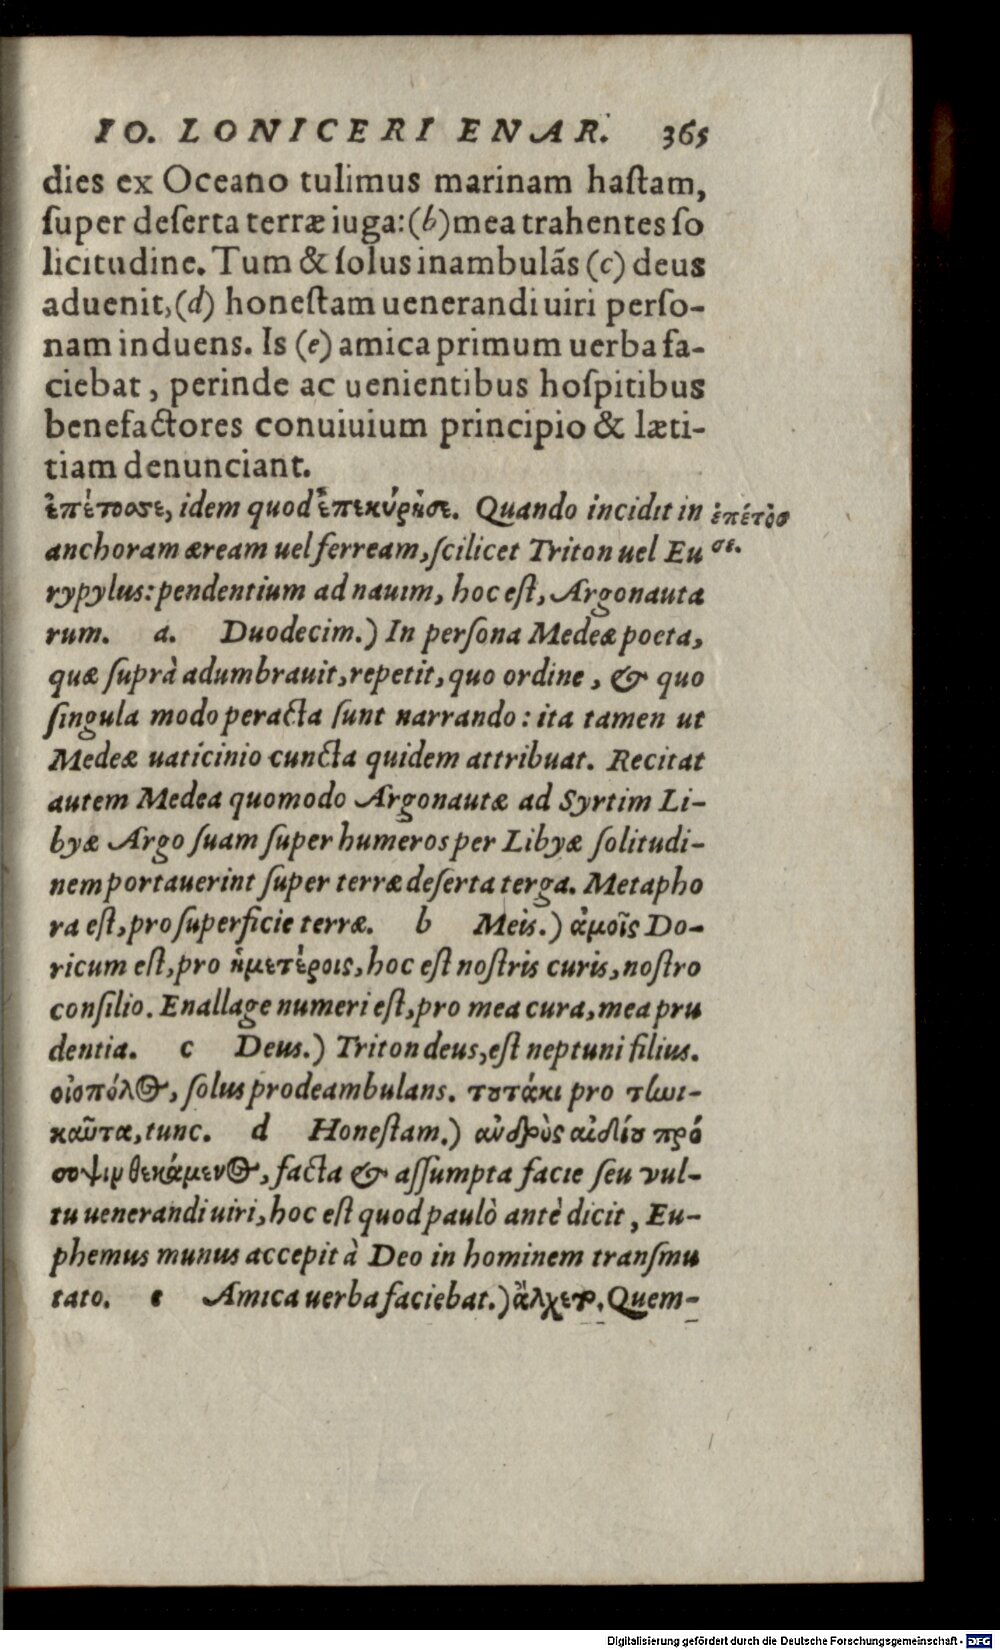 IO. LONICERI ENAR. 365
dies ex Oceano tulimus marinam haſtam,
ſuper deſerta terræ iuga:(b)mea trahentes ſo
licitudine. Tum & ſolus inambulãs (c) deus
aduenit,(d) honeſtam uenerandi uiri perſo-
nam induens. Is (e) amica primum uerba fa-
ciebat, perinde ac uenientibus hoſpitibus
benefactores conuiuium principio & læti-
tiam denunciant.
ἐπέτοσσε, idem quod ἐπεκύρησε. Quando incidit in
ἐπέτοσ
anchoram æream uel ferream, ſcilicet Triton uel Eu
σε.
rypylus: pendentium ad nauim, hoc eſt, Argonauta
rum. a. Duodecim.) In perſona Medeæ poeta,
quæ ſuprà adumbrauit, repetit, quo ordine, & quo
ſingula modo peracta ſunt narrando: ita tamen ut
Medeæ uaticinio cuncta quidem attribuat. Recitat
autem Medea quomodo Argonautæ ad Syrtim Li-
byæ Argo ſuam ſuper humeros per Libyæ ſolitudi-
nem portauerint ſuper terræ deſerta terga. Metapho
ra eſt, pro ſuperficie terræ. b Meis.) ἀμοῖς Do-
ricum eſt, pro ἡμετέροις, hoc eſt noſtris curis, noſtro
conſilio. Enallage numeri eſt, pro mea cura, mea pru
dentia. c Deus.) Triton deus, eſt neptuni filius.
οἰοπόλος, ſolus prodeambulans. τουτάκι pro τηνι-
καῦτα, tunc. d Honeſtam.) ἀνδρὸς αἰδοίου πρό
σοψιν θεκάμενος, facta & aſſumpta facie ſeu vul-
tu uenerandi uiri, hoc eſt quod paulò antè dicit, Eu-
phemus munus accepit à Deo in hominem tranſmu
tato. e Amica uerba faciebat.) Quem-
Digitalisierung gefördert durch die Deutsche Forschungsgemeinschaft - DFG